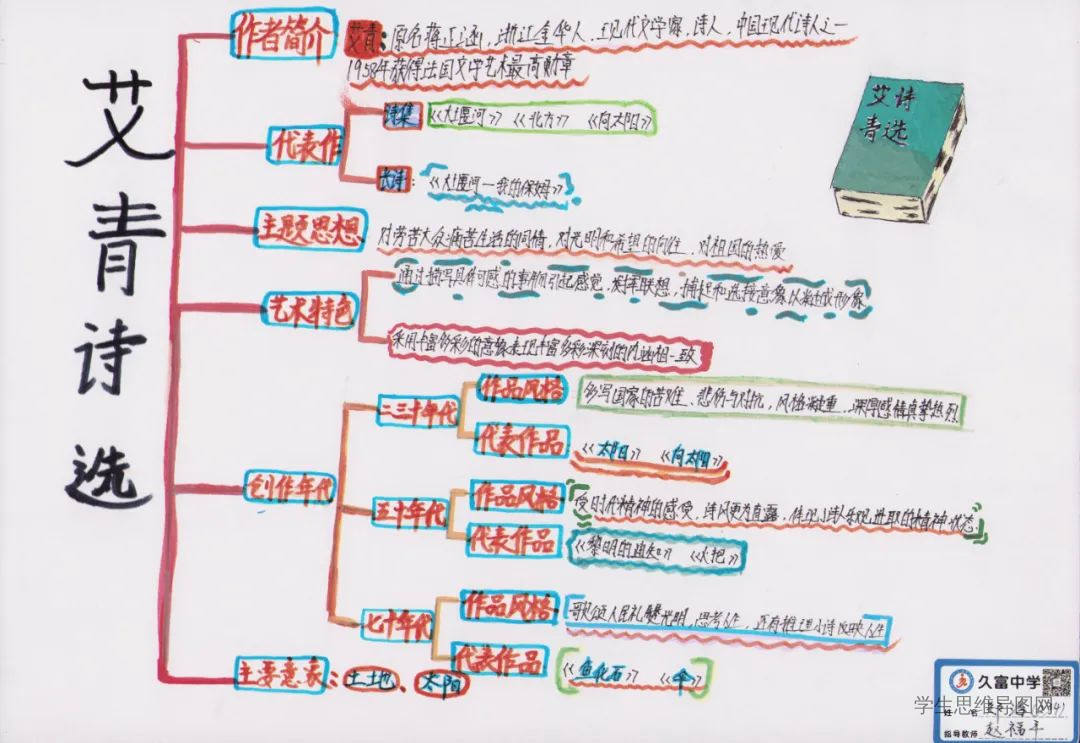 艾青诗选
作者简介
艾青：原名蒋正涵，浙江金华人，现代文学家、诗人，中国现代诗人之一
1958年获得法国文学艺术最高勋章
代表作
诗集
《大堰河》 《北方》 《向太阳》
长诗：
《大堰河—我的保姆》
艾诗
青选
主题思想
对劳苦大众痛苦生活的同情，对光明和希望的向往，对祖国的热爱
艺术特色
通过描写具体可感的事物引起感觉，发挥联想，捕捉和选择意象以凝成形象
采用丰富多彩的意象表现丰富多彩深刻的内涵相一致
创作年代
二三十年代
作品风格
多写国家的苦难、悲伤与对抗，风格凝重，深得感情真挚热烈
代表作品
《太阳》 《向太阳》
五十年代
作品风格
受时代精神的感受，诗风更为直露，体现诗人乐观进取的精神状态
代表作品
《黎明的通知》 《火把》
七十年代
作品风格
歌颂人民礼赞光明，思考人生，还有推理小诗反映人生
代表作品
《鱼化石》 《伞》
主要意象：土地、太阳
久富中学
姓 名
学生思维导图网
指导教师 赵福平